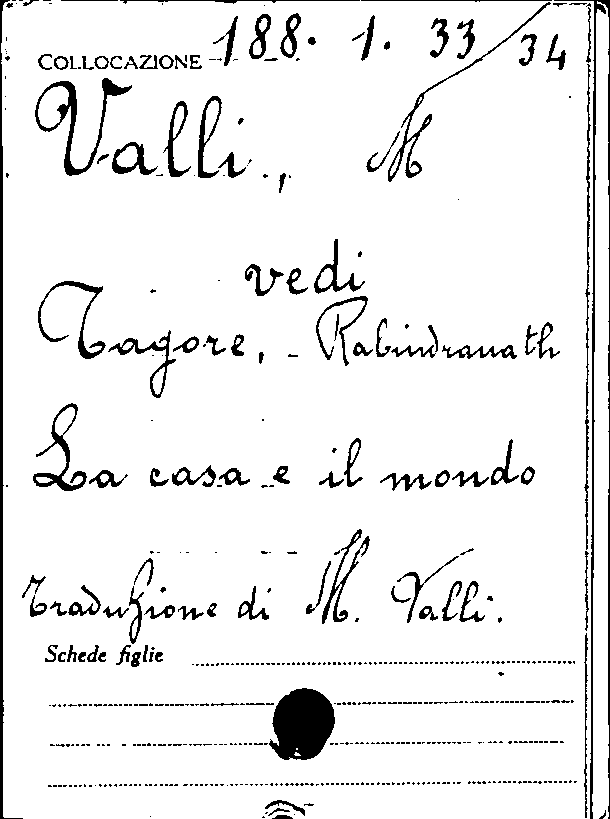 COLLOCAZIONE 188. 1. 33/34
Valli, M
vedi
Tagore, Rabindranath
La casa e il mondo
Traduzione di M. Valli.
Schede figlie